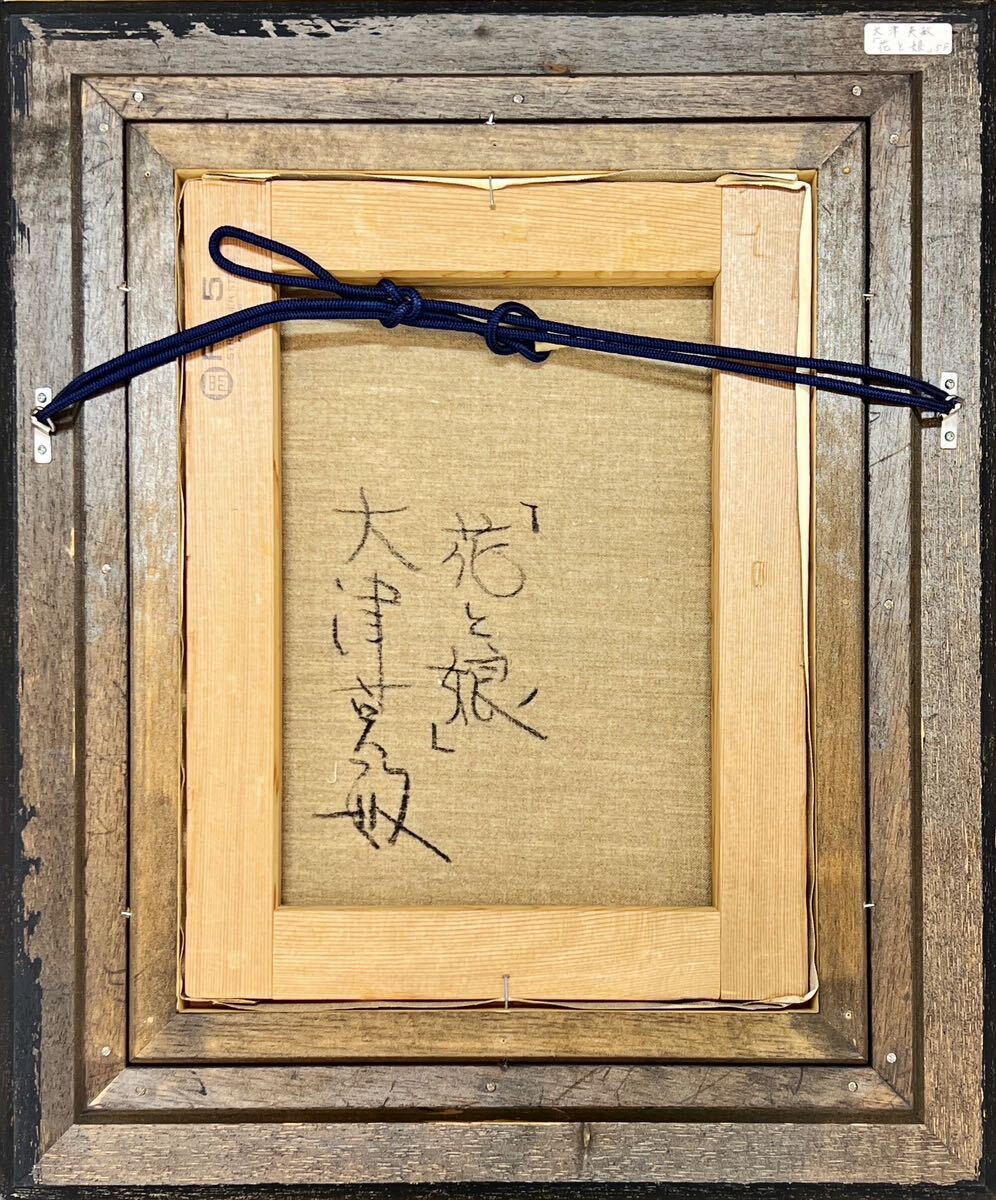 大津英敏
「花と娘」5F
F5
BE
「花と娘」
大津英敏